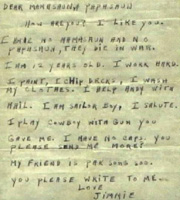 DEAR MAMASAN AND PAPASAN
HOW ARE YOU? I LIKE YOU.
I HAVE NO MAMASAN AND NO
PAPASAN, THEY DIE IN WAR.
I AM 12 YEARS OLD. I WORK HARD.
I PAINT, I CHIP DECKS, I WASH
MY CLOTHES. I HELP ANDY WITH
MAIL. I AM SAILOR BOY, I SALUTE.
I PLAY COWBOY WITH GUN YOU
GAVE ME. I HAVE NO CAPS. YOU
PLEASE SEND ME MORE?
MY FRIEND IS PAK
YOU PLEASE WRITE TO ME..
LOVE
JIMMIE